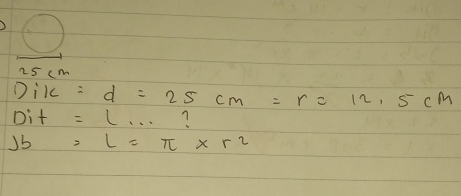 25 cm
Dik = d = 25 cm = r = 12,5 cm
Dit = L... ?
Jb = L = π x r²